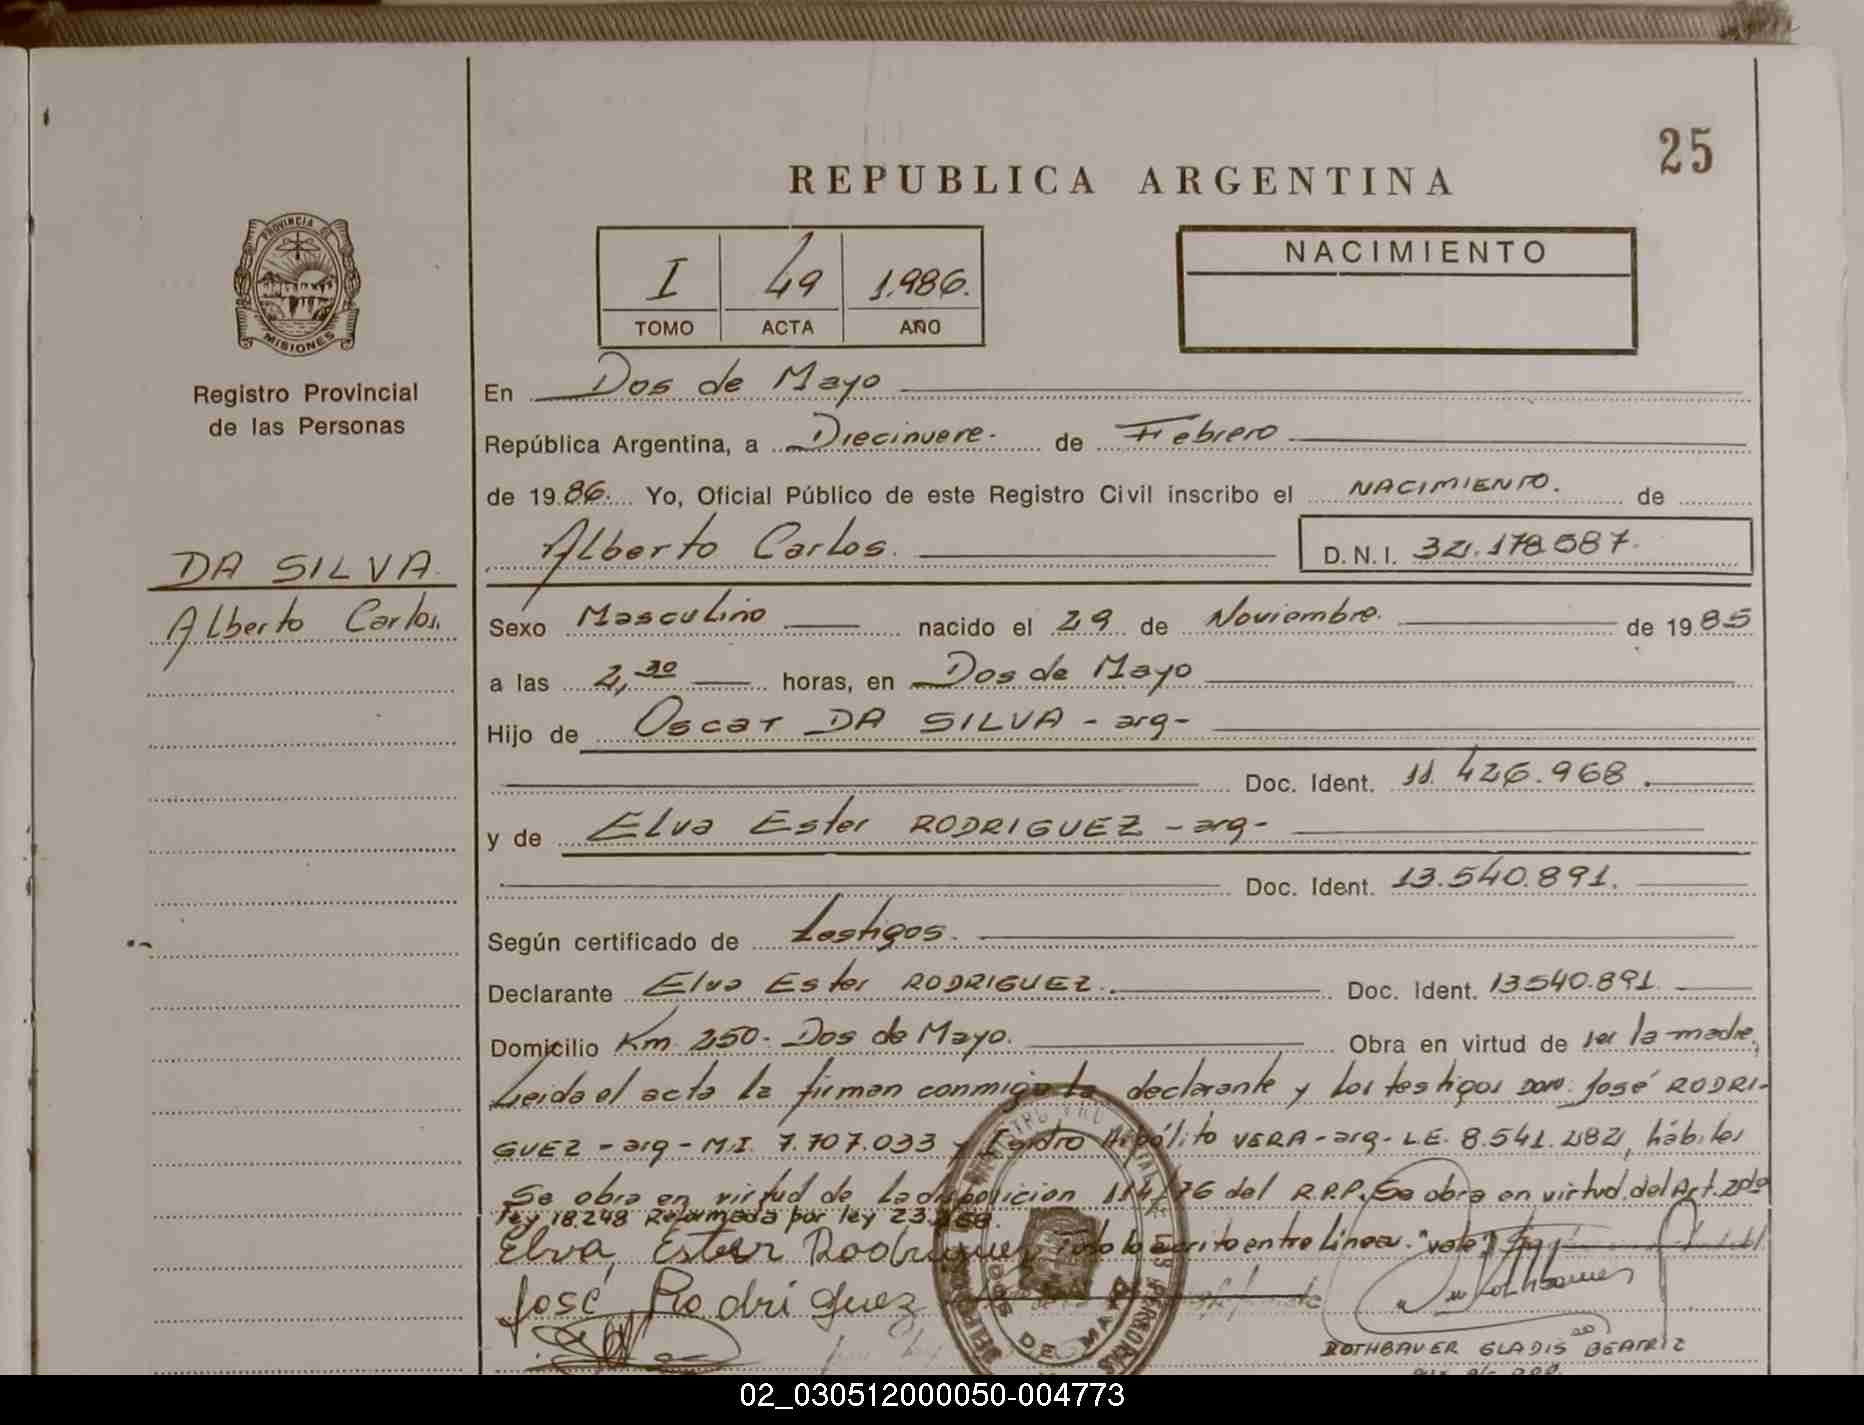 25
REPUBLICA ARGENTINA
PROVINCIA DE
MISIONES
Registro Provincial
de las Personas
I 49 1.986.
TOMO ACTA AÑO
NACIMIENTO
En Dos de Mayo
República Argentina, a Diecinueve. de Febrero
de 1986. Yo, Oficial Público de este Registro Civil inscribo el NACIMIENTO. de
Alberto Carlos. D.N.I.
DA SILVA.
Alberto Carlos.
Sexo Masculino nacido el 29 de Noviembre. de 1985
a las 2,30 horas, en Dos de Mayo
Hijo de Oscar DA SILVA - arg-
Doc. Ident. 11.426.968.
y de Elva Ester RODRIGUEZ - arg-
Doc. Ident. 13.540.891.
Según certificado de testigos.
Declarante Elva Ester RODRIGUEZ. Doc. Ident. 13.540.891.
Domicilio Km. 250. Dos de Mayo. Obra en virtud de ser la madre,
Leida el acta la firman conmigo la declarante y los testigos Don: José RODRI-
GUEZ - arg - M.I. 7.707.033 y Hipólito VERA - arg - L.E. hábiles
Se obra en virtud de la disposicion 114/76 del R.P.P. Se obra en virtud del Art. 2do
ley 18.248 Reformada por ley
Elva, Ester Rodriguez Todo lo escrito entre lineas. "vale"
José Rodriguez
DOS DE MAYO
ROTHBAUER GLADIS BEATRIZ
02_030512000050-004773